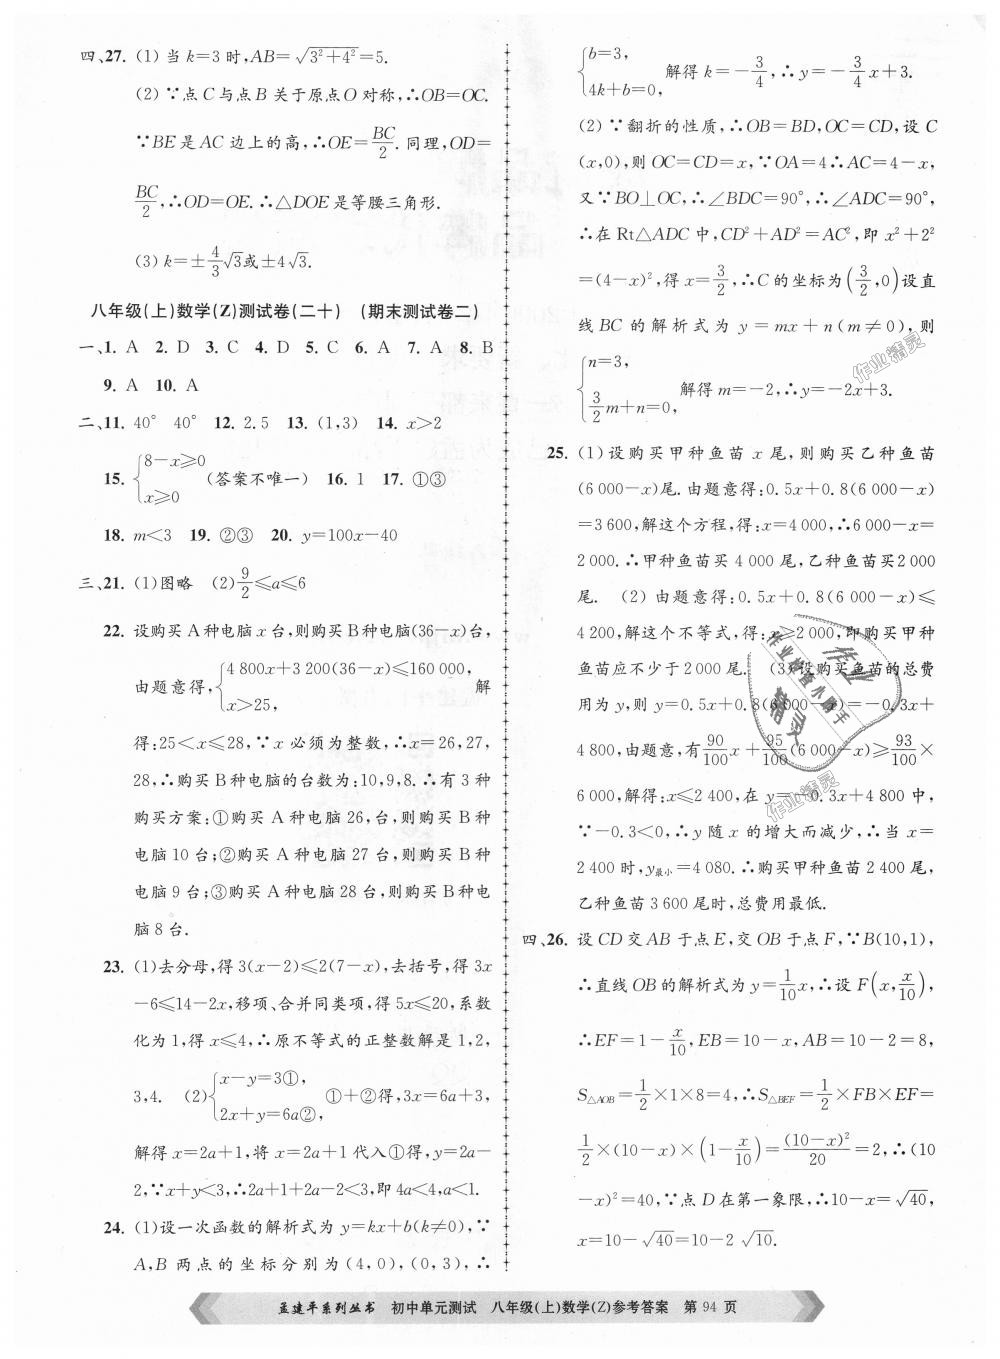 四、27. (1) 当 k=3 时,AB=√(3²+4²)=5.
(2) ∵点 C 与点 B 关于原点 O 对称,∴OB=OC.
∵BE 是 AC 边上的高,∴OE=BC/2. 同理,OD=
BC/2,∴OD=OE.∴△DOE 是等腰三角形.
(3) k=±4/3√3或±4√3.
八年级(上)数学(Z)测试卷(二十) (期末测试卷二)
一、1. A 2. D 3. C 4. D 5. C 6. A 7. A 8. B
9. A 10. A
二、11. 40° 40° 12. 2.5 13. (1,3) 14. x>2
15. {8-x≥0 x≥0 (答案不唯一) 16. 1 17. ①③
18. m<3 19. ②③ 20. y=100x-40
三、21. (1)图略 (2)9/2≤a≤6
22. 设购买A种电脑x台,则购买B种电脑(36-x)台,
由题意得,{4 800x+3 200(36-x)≤160 000, x>25, 解
得:25<x≤28,∵x 必须为整数,∴x=26,27,
28,∴购买B种电脑的台数为:10,9,8.∴有3种
购买方案:①购买A种电脑26,台,则购买B种
电脑10台;②购买A种电脑27台,则购买B种
电脑9台;③购买A种电脑28台,则购买B种电
脑8台.
23. (1)去分母,得3(x-2)≤2(7-x),去括号,得3x
-6≤14-2x,移项、合并同类项,得5x≤20,系数
化为1,得x≤4,∴原不等式的正整数解是1,2,
3,4. (2){x-y=3①, 2x+y=6a②, ①+②得,3x=6a+3,
解得x=2a+1,将x=2a+1代入①得,y=2a-
2,∵x+y<3,∴2a+1+2a-2<3,即4a<4,a<1.
24. (1)设一次函数的解析式为y=kx+b(k≠0),∵
A,B 两点的坐标分别为(4,0),(0,3),∴
{b=3, 4k+b=0, 解得k=-3/4,∴y=-3/4x+3.
(2)∵翻折的性质,∴OB=BD,OC=CD,设C
(x,0),则OC=CD=x,∵OA=4∴AC=4-x,
又∵BO⊥OC,∴∠BDC=90°,∴∠ADC=90°,
∴在Rt△ADC中,CD²+AD²=AC²,即x²+2²
=(4-x)²,得x=3/2,∴C的坐标为(3/2,0)设直
线BC的解析式为y=mx+n(m≠0),则
{n=3, 3/2m+n=0, 解得m=-2,∴y=-2x+3.
25. (1)设购买甲种鱼苗x尾,则购买乙种鱼苗
(6 000-x)尾.由题意得:0.5x+0.8(6 000-x)
=3 600,解这个方程,得:x=4 000,∴6 000-x=
2 000.∴甲种鱼苗买4 000尾,乙种鱼苗买2 000
尾. (2)由题意得:0.5x+0.8(6 000-x)≤
4 200,解这个不等式,得:x≥2 000,即购买甲种
鱼苗应不少于2 000尾. (3)设购买鱼苗的总费
用为y,则y=0.5x+0.8(6 000-x)=-0.3x+
4 800,由题意,有90/100x+95/100(6 000-x)≥93/100×
6 000,解得:x≤2 400,在y=-0.3x+4 800中,
∵-0.3<0,∴y随x的增大而减少,∴当x=
2 400时,y最小=4 080.∴购买甲种鱼苗2 400尾,
乙种鱼苗3 600尾时,总费用最低.
四、26. 设CD交AB于点E,交OB于点F,∵B(10,1),
∴直线OB的解析式为y=1/10x,∴设F(x,x/10),
∴EF=1-x/10,EB=10-x,AB=10-2=8,
S△AOB=1/2×1×8=4,∴S△BEF=1/2×FB×EF=
1/2×(10-x)×(1-x/10)=(10-x)²/20=2,∴(10
-x)²=40,∵点D在第一象限,∴10-x=√40,
x=10-√40=10-2√10.
作业精灵
作业检查小助手
作业精灵
作业精灵
孟建平系列丛书 初中单元测试 八年级(上)数学(Z)参考答案 第94页